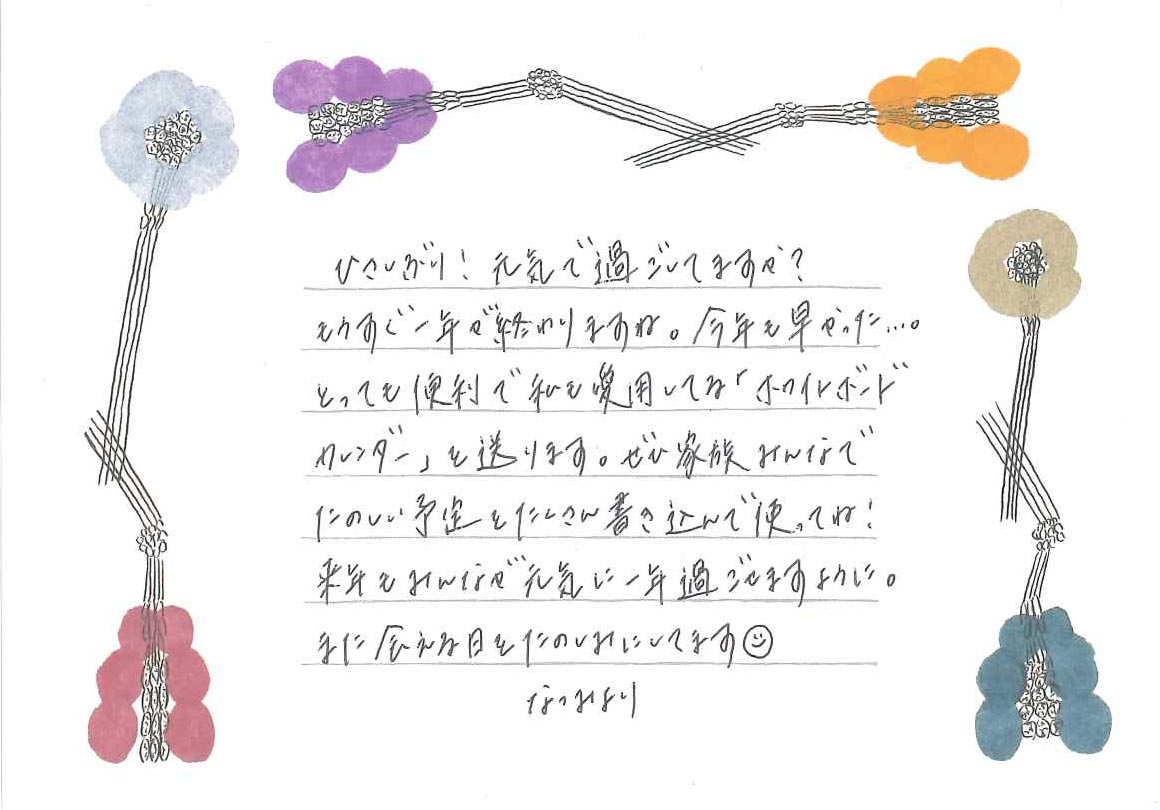 ひさしぶり！元気で過ごしてますか？
もうすぐ一年が終わりますね。今年も早かった…。
とっても便利で私も愛用してる「ホワイトボード
カレンダー」を送ります。ぜひ家族みんなで
たのしい予定をたくさん書き込んで使ってね！
来年もみんなが元気に一年過ごせますように。
また会える日をたのしみにしてます☺
なつみより